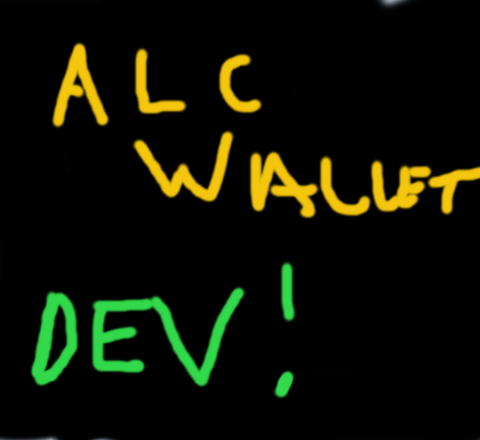 ALC
WALLET
DEV!